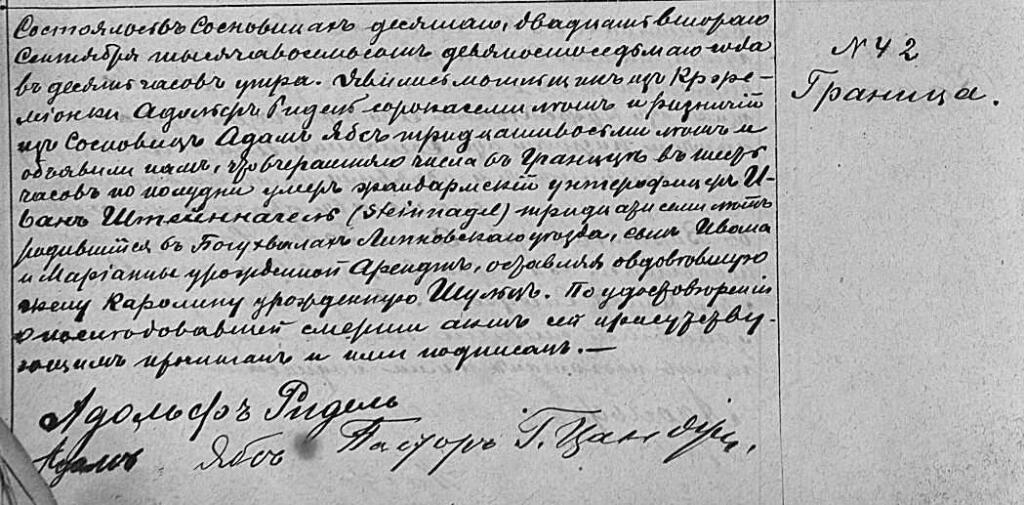 Состоялось въ Сосновицахъ десятаго, двадцать втораго
Сентября тысяча восемьсотъ девяносто седьмаго года
въ десять часовъ утра. Явились мотъ изъ
Адольфъ Ридель сорока семи лѣтъ и
изъ Сосновицъ Адамъ Ябсъ тридцати восьми лѣтъ и
объявили намъ, что вчерашняго числа въ Границѣ въ шесть
часовъ по полудни умеръ жандармскій унтерофицеръ И-
ванъ Штейннагель (Steinnagel) тридцати семи лѣтъ
родившійся въ Богухвалахъ Липновскаго уѣзда, сынъ Ивана
и Маріанны урожденной Арендтъ, оставляя овдовѣвшую
жену Каролину урожденную Шульцъ. По удостовѣреніи
о послѣдовавшей смерти актъ сей присутству-
ющимъ прочитанъ и ими подписанъ. —
Адольфъ Ридель
Адамъ Ябсъ Пасторъ Г. Цандеръ.
N 42
Граница.